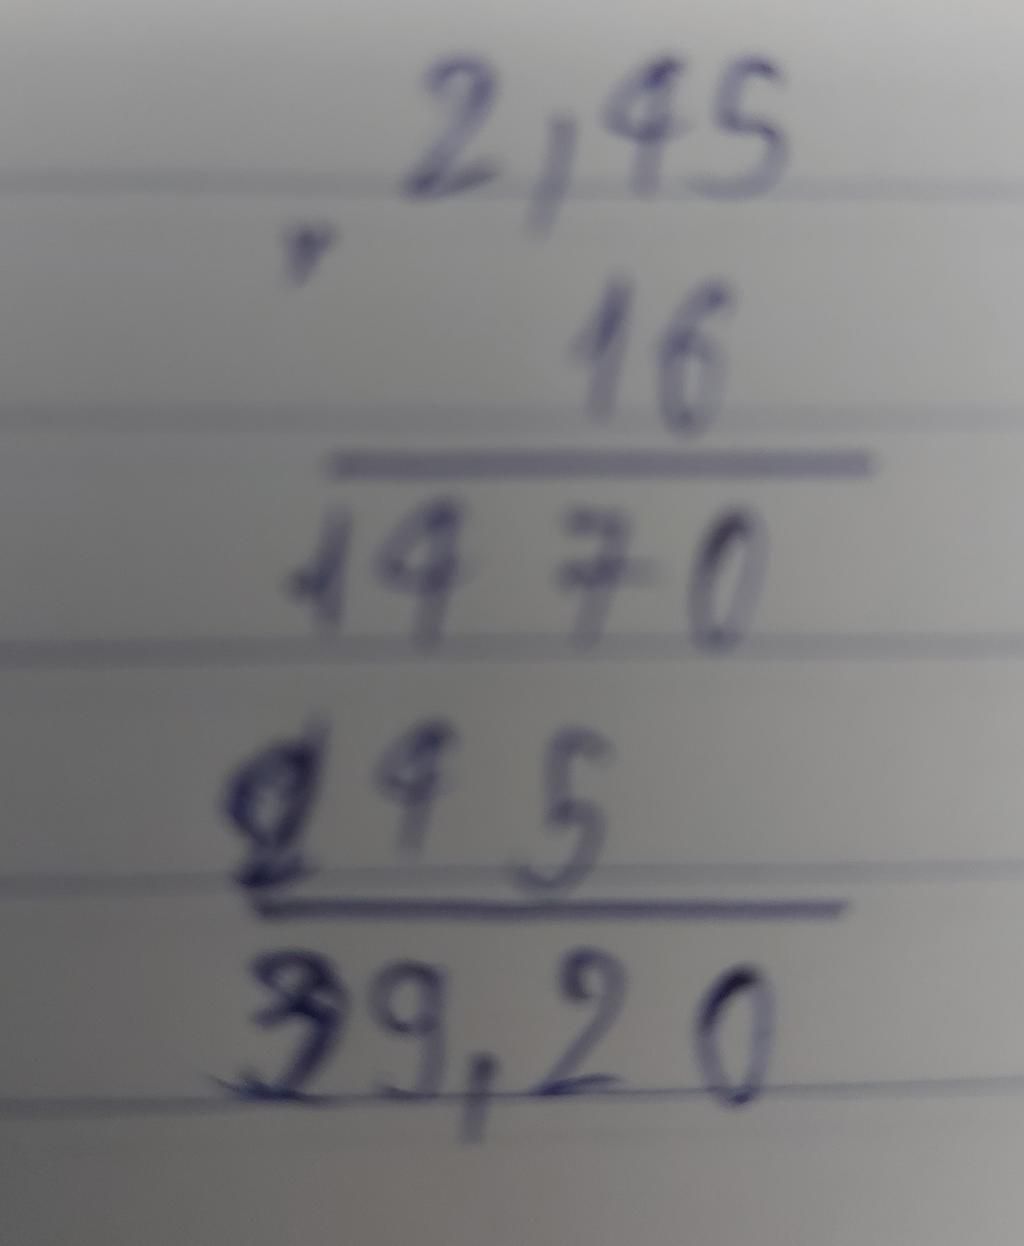 2,45
16
1470
245
39,20